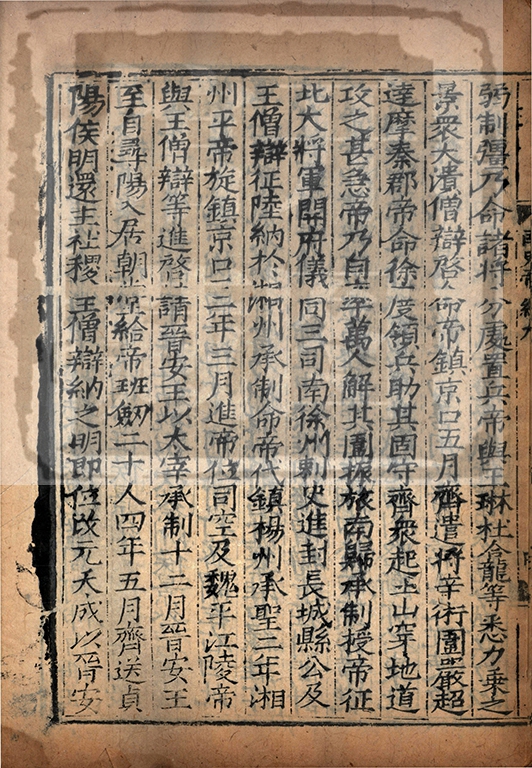 弱制彊乃命諸將分處置兵帝與王琳杜龕等悉力乘之
景衆大潰僧辯啓命帝鎮京口五月齊遣將辛術圍嚴超
達於秦郡帝命徐度領兵助其固守齊衆起土山穿地道
攻之甚急帝乃自率萬人解其圍振旅南歸承制授帝征
北大將軍開府儀同三司南徐州刺史進封長城縣公及
王僧辯征陸納於湘州承制命帝代鎮楊州承聖二年湘
州平帝旋鎮京口三年三月進帝位司空及魏平江陵帝
與王僧辯等進啓請晉安王以太宰承制十二月晉安王
至自尋陽入居朝堂給帝班劒二十人四年五月齊送貞
陽侯明還主社稷王僧辯納之明即位改元天成以晉安